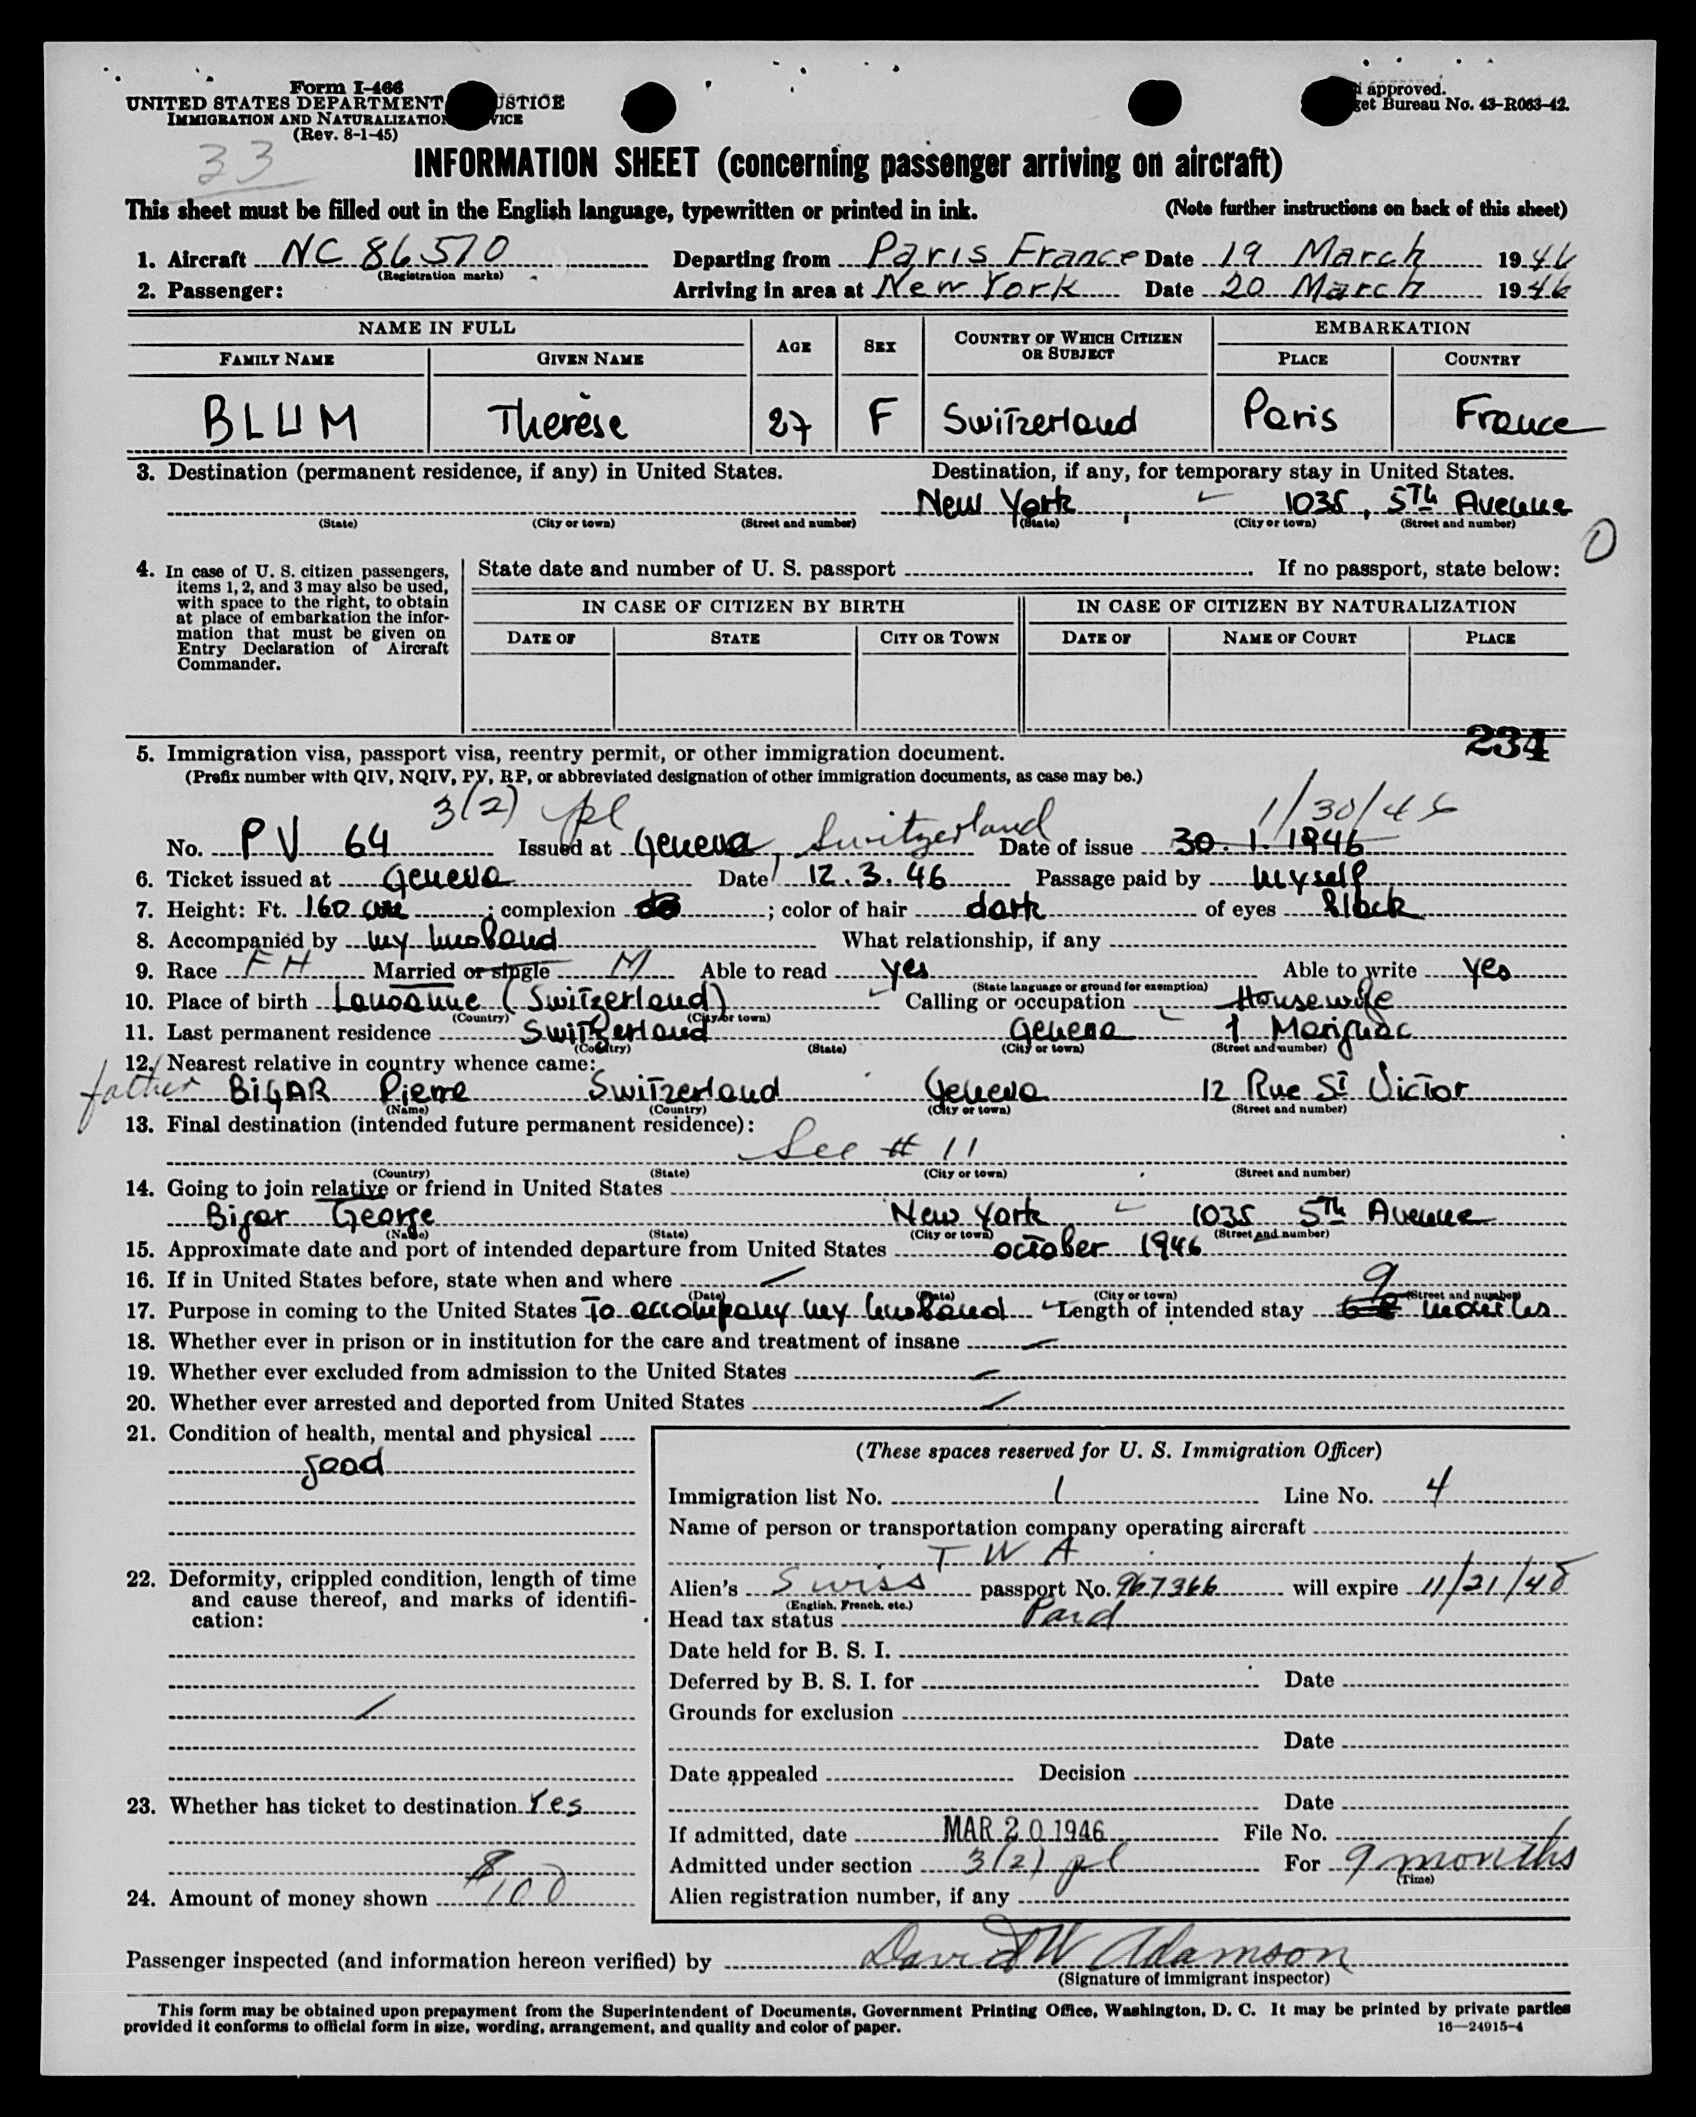 Form I-466
UNITED STATES DEPARTMENT USTICE
IMMIGRATION AND NATURALIZATION VICE
(Rev. 8-1-45)
approved.
get Bureau No. 43-R063-42.
33
INFORMATION SHEET (concerning passenger arriving on aircraft)
This sheet must be filled out in the English language, typewritten or printed in ink. (Note further instructions on back of this sheet)
1. Aircraft NC 86510 Departing from Paris France Date 19 March 1946
(Registration marks)
2. Passenger: Arriving in area at New York Date 20 March 1946
NAME IN FULL AGE SEX COUNTRY OF WHICH CITIZEN OR SUBJECT EMBARKATION
FAMILY NAME GIVEN NAME PLACE COUNTRY
BLUM Therèse 27 F Switzerland Paris France
3. Destination (permanent residence, if any) in United States. Destination, if any, for temporary stay in United States.
New York, 1035, 5Th Avenue
(State) (City or town) (Street and number) (State) (City or town) (Street and number)
0
4. In case of U. S. citizen passengers, items 1, 2, and 3 may also be used, with space to the right, to obtain at place of embarkation the information that must be given on Entry Declaration of Aircraft Commander.
State date and number of U. S. passport If no passport, state below:
IN CASE OF CITIZEN BY BIRTH IN CASE OF CITIZEN BY NATURALIZATION
DATE OF STATE CITY OR TOWN DATE OF NAME OF COURT PLACE
234
5. Immigration visa, passport visa, reentry permit, or other immigration document.
(Prefix number with QIV, NQIV, PV, RP, or abbreviated designation of other immigration documents, as case may be.)
3(2) pl 1/30/46
No. PV 64 Issued at Geneva, Switzerland Date of issue 30.1.1946
6. Ticket issued at Geneva Date 12.3.46 Passage paid by myself
7. Height: Ft. 160 cm; complexion; color of hair dark of eyes black
8. Accompanied by my husband What relationship, if any
9. Race FH Married or single M Able to read yes Able to write yes
(State language or ground for exemption)
10. Place of birth Lausanne (Switzerland) Calling or occupation Housewife
(Country) (City or town)
11. Last permanent residence Switzerland Geneva 1 Marignac
(Country) (State) (City or town) (Street and number)
12. Nearest relative in country whence came:
father BIGAR Pierre Switzerland Geneva 12 Rue St Victor
(Name) (Country) (City or town) (Street and number)
13. Final destination (intended future permanent residence):
See # 11
(Country) (State) (City or town) (Street and number)
14. Going to join relative or friend in United States
Bigar George New York 1035 5Th Avenue
(Name) (State) (City or town) (Street and number)
15. Approximate date and port of intended departure from United States october 1946
16. If in United States before, state when and where
(Date) (State) (City or town) (Street and number)
17. Purpose in coming to the United States To accompany my husband Length of intended stay 9 months
18. Whether ever in prison or in institution for the care and treatment of insane
19. Whether ever excluded from admission to the United States
20. Whether ever arrested and deported from United States
21. Condition of health, mental and physical
good
22. Deformity, crippled condition, length of time and cause thereof, and marks of identification:
23. Whether has ticket to destination Yes
24. Amount of money shown $100
(These spaces reserved for U. S. Immigration Officer)
Immigration list No. 1 Line No. 4
Name of person or transportation company operating aircraft
TWA
Alien's Swiss passport No. 967366 will expire 11/21/48
(English, French, etc.)
Head tax status Paid
Date held for B. S. I.
Deferred by B. S. I. for Date
Grounds for exclusion
Date
Date appealed Decision
Date
If admitted, date MAR 20 1946 File No.
Admitted under section 3(2) pl For 9 months
(Time)
Alien registration number, if any
Passenger inspected (and information hereon verified) by David W Adamson
(Signature of immigrant inspector)
This form may be obtained upon prepayment from the Superintendent of Documents, Government Printing Office, Washington, D. C. It may be printed by private parties
provided it conforms to official form in size, wording, arrangement, and quality and color of paper. 16—24915-4